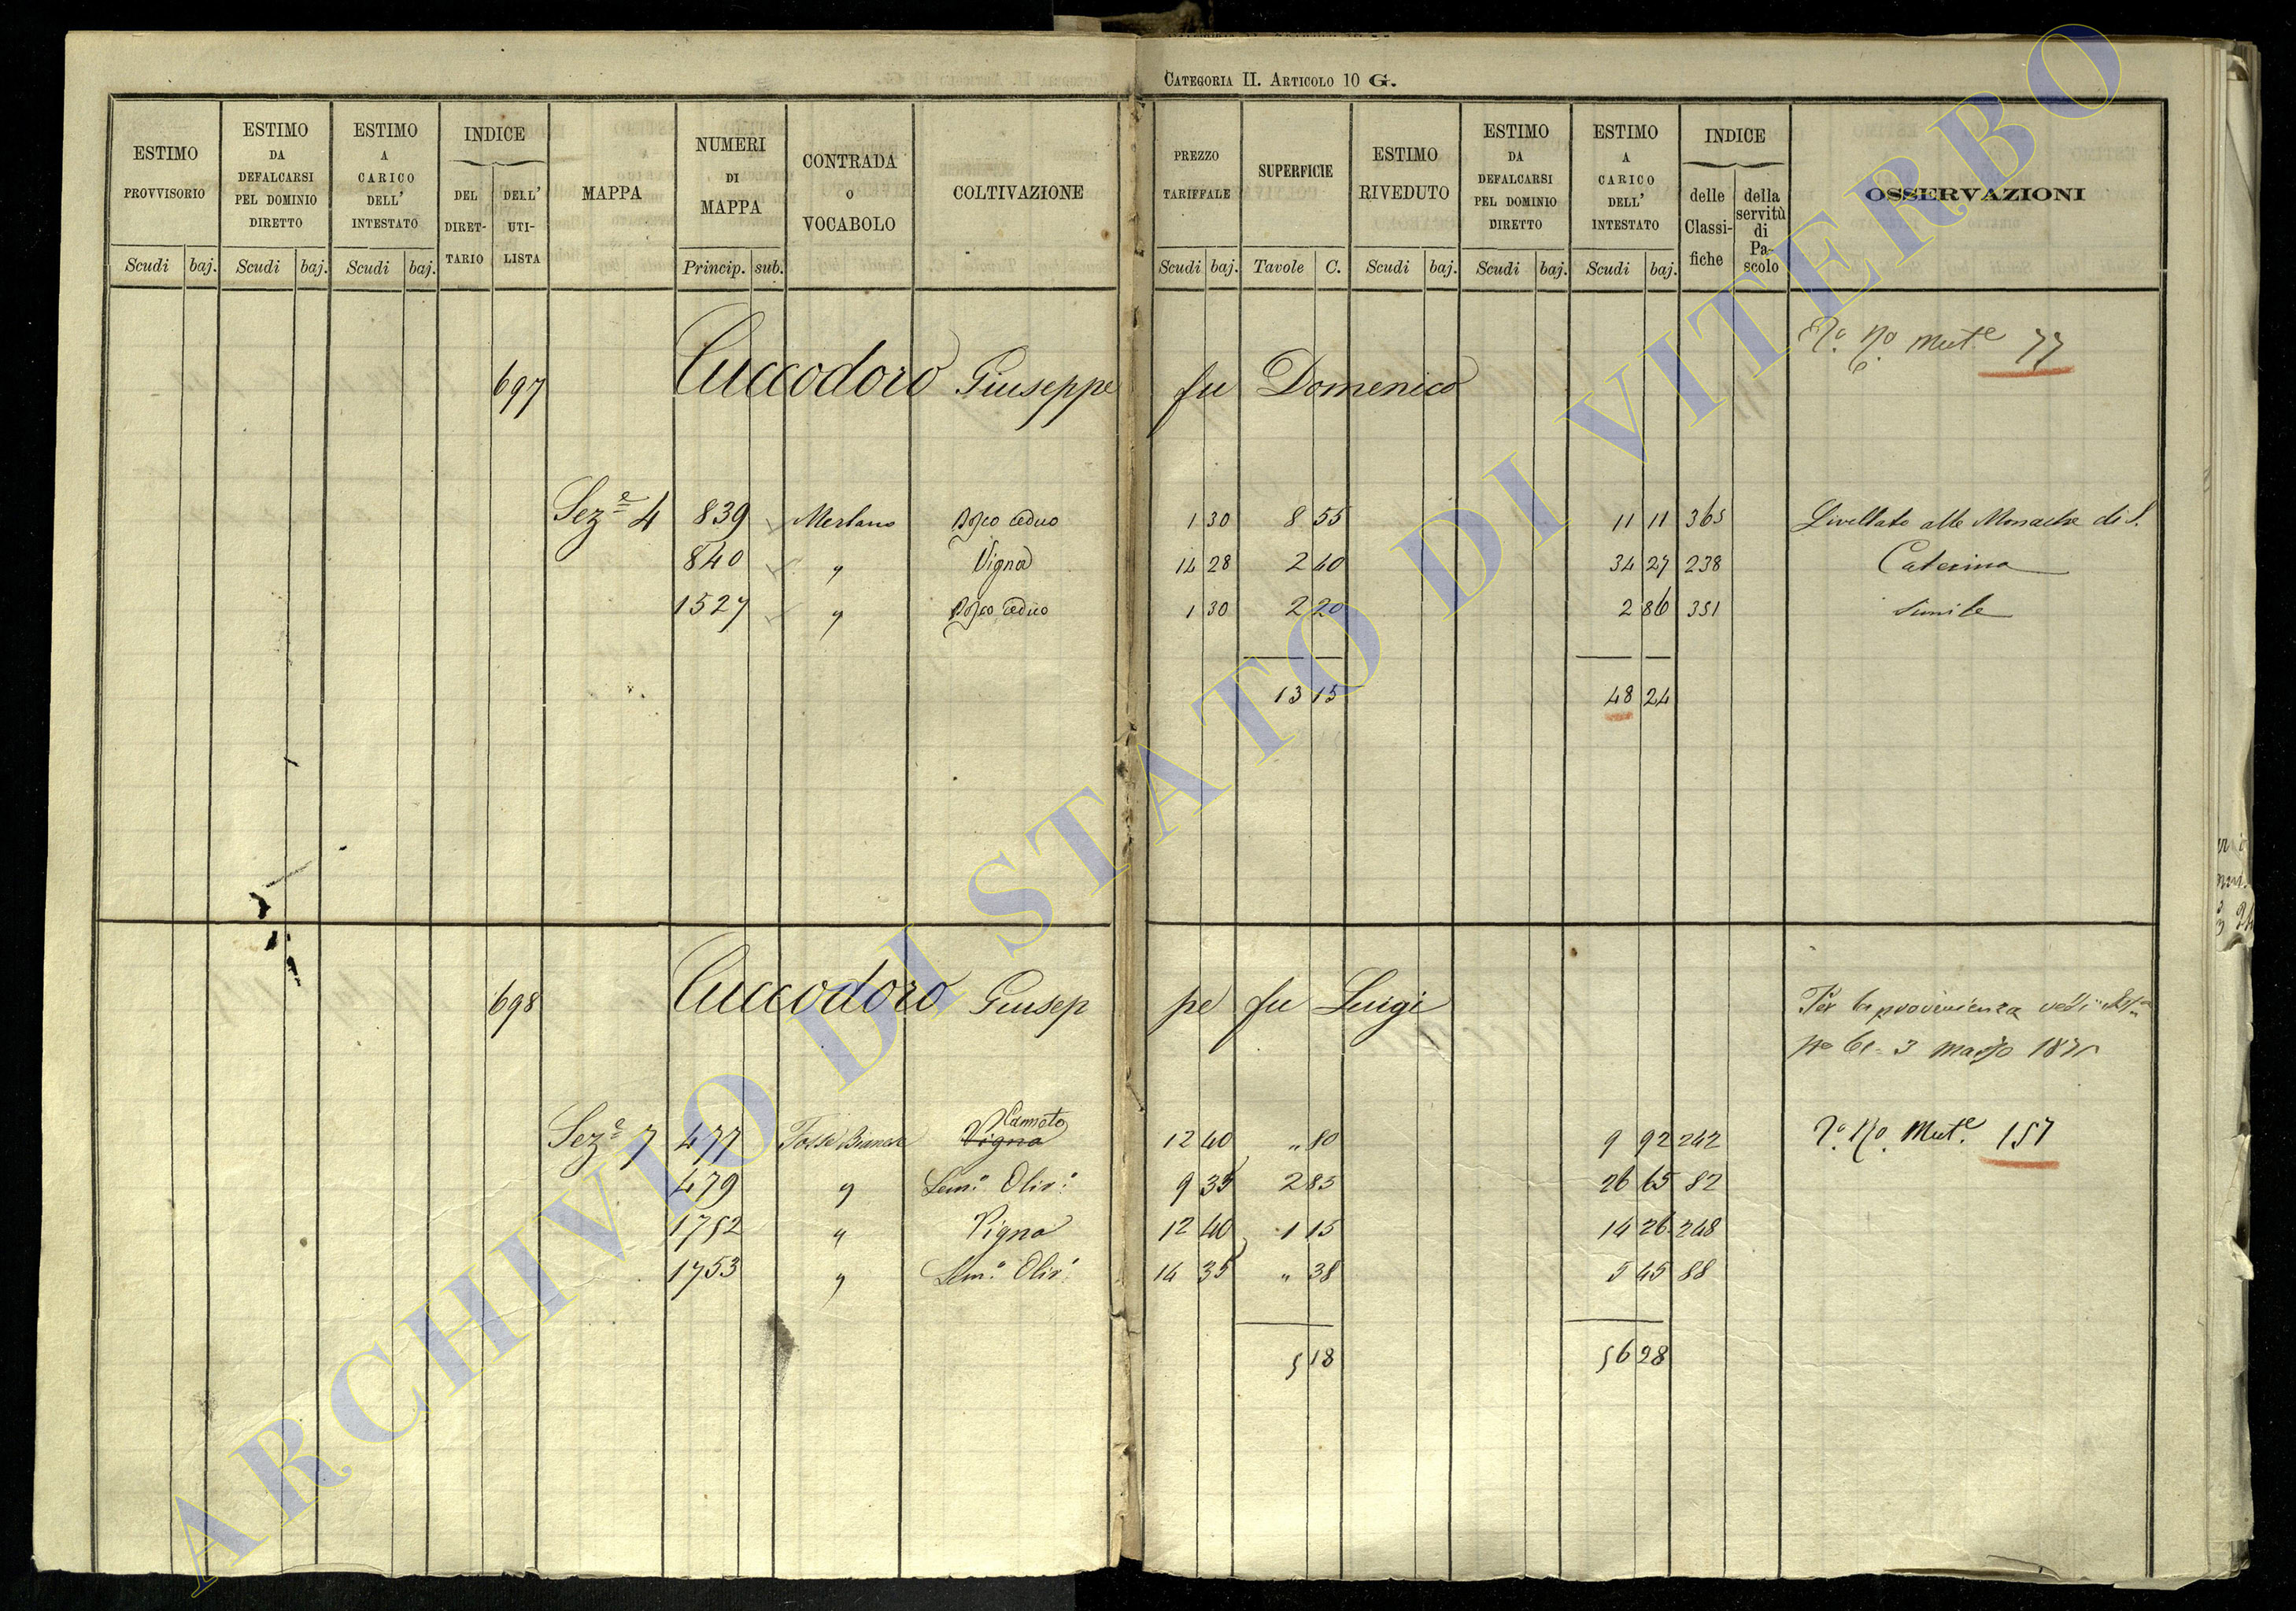 CATEGORIA II. ARTICOLO 10 G.
ESTIMO PROVVISORIO | ESTIMO DA DEFALCARSI PEL DOMINIO DIRETTO | ESTIMO A CARICO DELL' INTESTATO | INDICE | MAPPA | NUMERI DI MAPPA | CONTRADA O VOCABOLO | COLTIVAZIONE | PREZZO TARIFFALE | SUPERFICIE | ESTIMO RIVEDUTO | ESTIMO DA DEFALCARSI PEL DOMINIO DIRETTO | ESTIMO A CARICO DELL' INTESTATO | INDICE | OSSERVAZIONI
DEL DIRET-TARIO | DELL' UTI-LISTA | delle Classi-fiche | della servitù di Pa-scolo
Scudi | baj. | Scudi | baj. | Scudi | baj. | Princip. | sub. | Scudi | baj. | Tavole | C. | Scudi | baj. | Scudi | baj. | Scudi | baj.
Mut.e 77
697 Cuccodoro Giuseppe fu Domenico
Sez.e 4 839 Merlano Bosco ceduo 1 30 8 55 11 11 365 Livellato alle Monache di S.
840 " Vigna 14 28 2 40 34 27 238 Caterina
1527 " Bosco ceduo 1 30 2 20 2 86 351 Simile
13 15 48 24
698 Cuccodoro Giuseppe fu Luigi
Per la provenienza vedi
3 marzo 187
Canneto
Sez.e 7 477 Fosse Bianche Vigna 12 40 " 80 9 92 242 Mut.e 157
479 " Sem.o Oliv.o 9 35 2 85 26 65 82
1752 " Vigna 12 40 1 15 14 26 248
1753 " Sem.o Oliv.o 14 35 " 38 5 45 88
5 18 56 28
ARCHIVIO DI STATO DI VITERBO